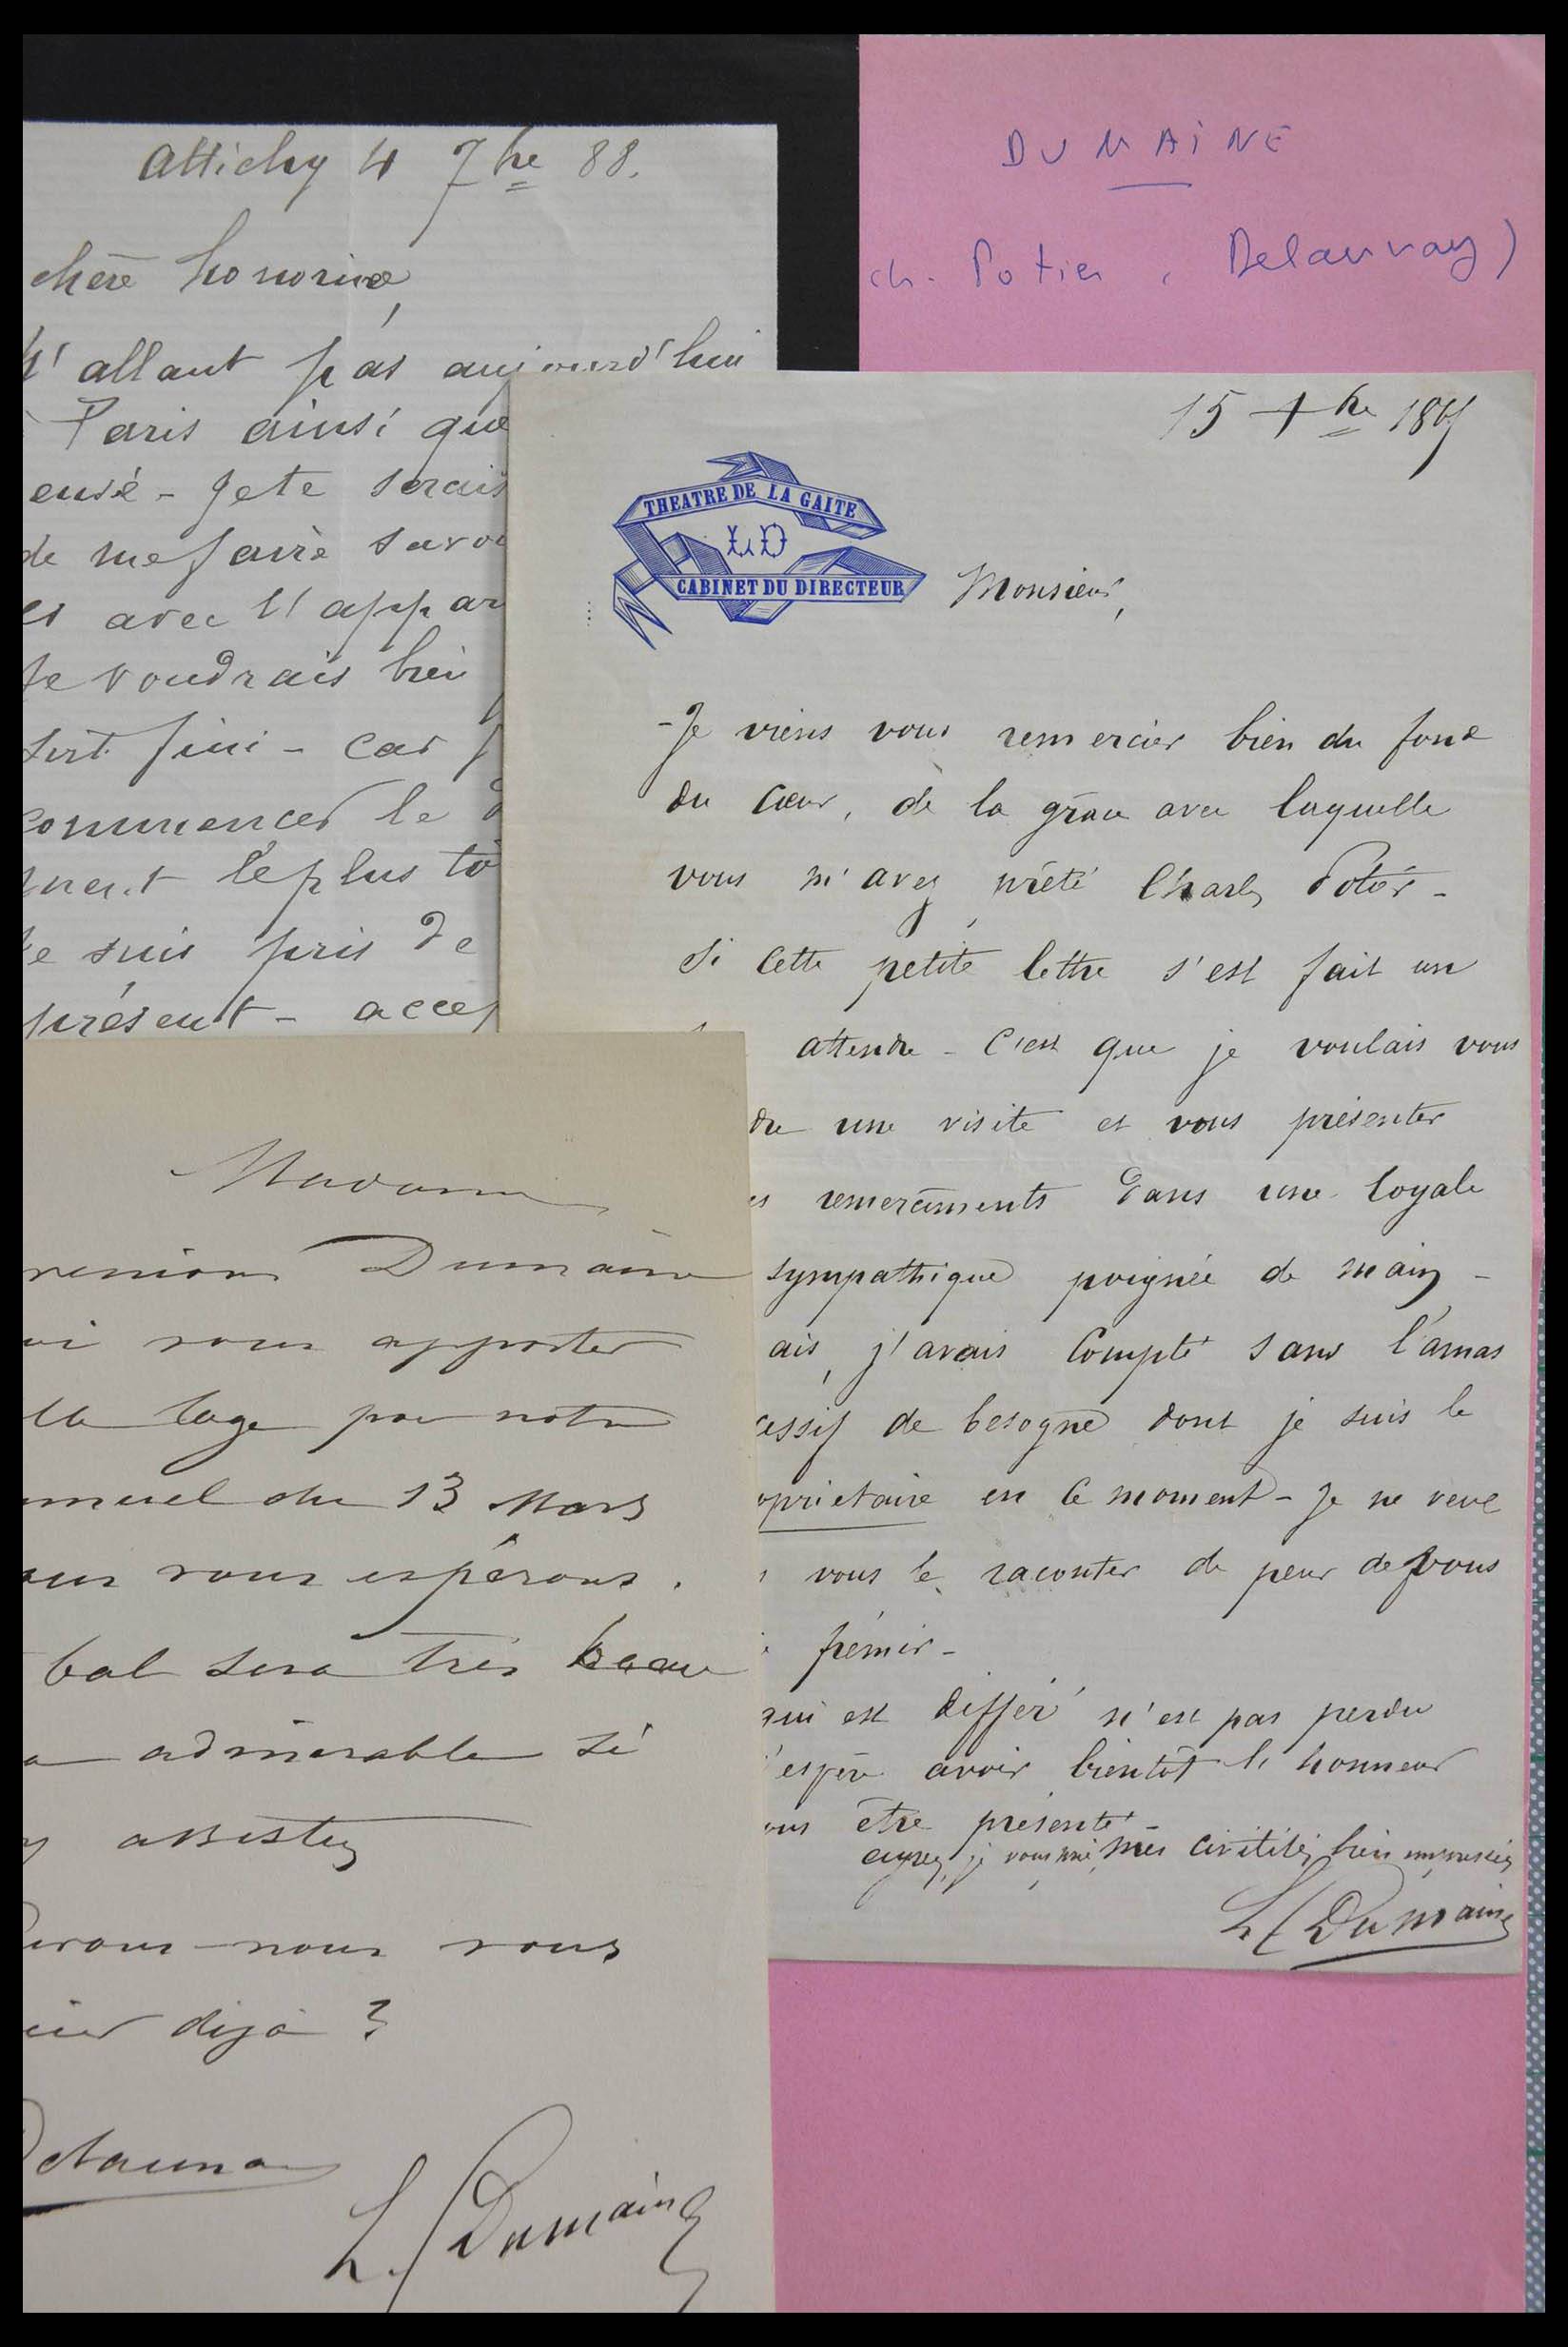 Attichy 4 7bre 88.
chère honorine,
N'allant pas aujourd'hui
Paris ainsi que
ensé - je te serais
de me faire savoi
et avec l'appar
Je voudrais bien
soit fini - car j
commencer le d
ment le plus tô
Je suis pris de
présent - accep
DUMAINE
ch. Potier, Delaunay)
15 1867
THEATRE DE LA GAITE
LD
CABINET DU DIRECTEUR
Monsieur,
- Je viens vous remercier bien du fond
du cœur, de la grâce avec laquelle
vous m'avez prêté Charles Potier -
Si cette petite lettre s'est fait un
attendre - C'est que je voulais vous
dre une visite et vous présenter
es remerciments dans une loyale
sympathique poignée de main -
ais, j'avais compté sans l'amas
cessif de besogne dont je suis le
oprietaire en ce moment - Je ne veux
vous le raconter de peur de vous
frémir -
qui est différé n'est pas perdu
'espère avoir bientôt l'honneur
ous être présenté
agréez, je vous prie, mes civilités bien empressées
L. Dumaine
Madame
Dumaine
vous apporter
la loge pour notre
annuel du 13 Mars
vous espérons.
bal sera très beau
admirable si
y assistez
nous vous
déjà ?
Delaunay
L. Dumaine